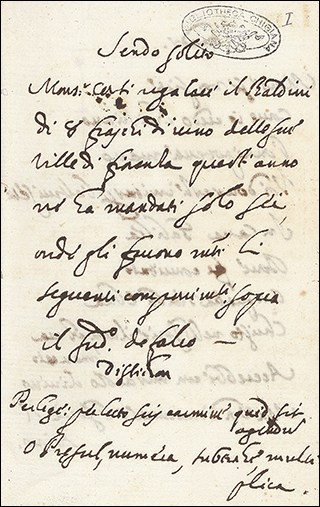 BIBLIOTHECA CHIGIANA
I
Sendo solito
Mons.r Cerri regalare il Baldini
di 8 fiaschi di vino delle sue
ville di questo anno
ne ha mandati solo sei
onde gli furono fatti li
seguenti componimenti sopra
il sud.o
Distichon
Perlege: perlecto sis carmine quid sit
agendum
O Presul, numera,
plica.